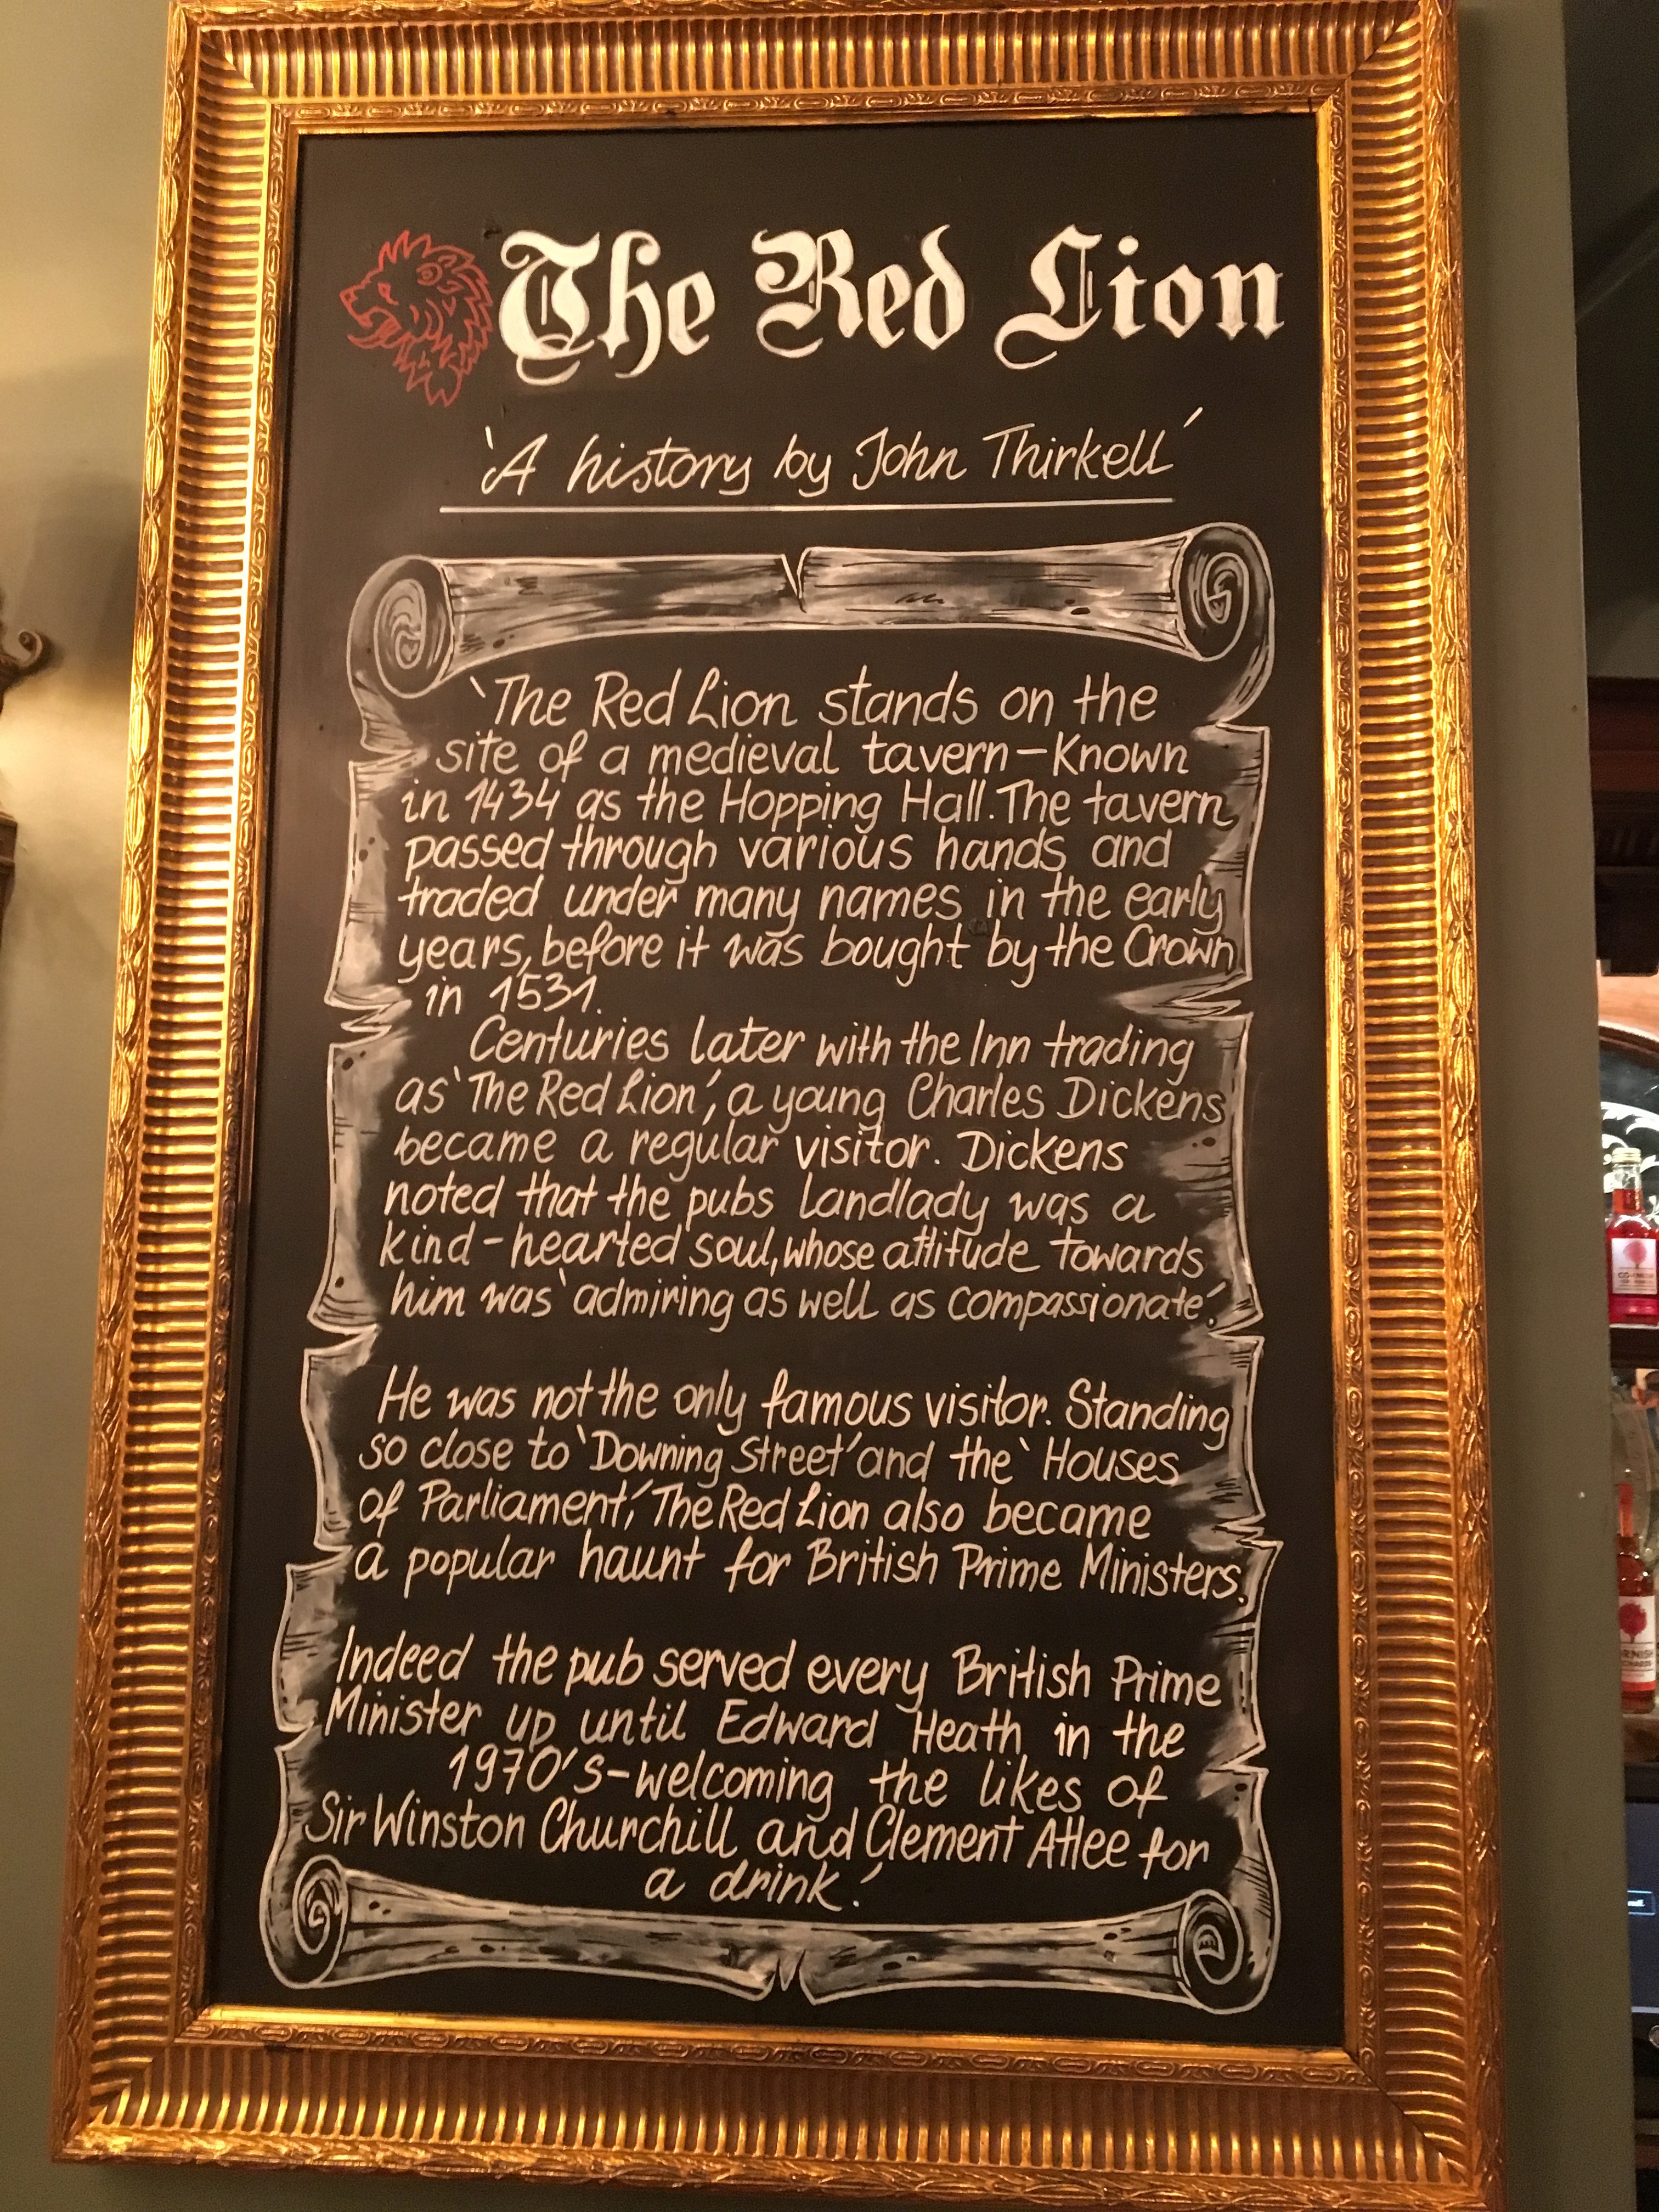 The Red Lion
'A history by John Thirkell'
'The Red Lion stands on the
site of a medieval tavern-Known
in 1434 as the Hopping Hall. The tavern
passed through various hands and
traded under many names in the early
years, before it was bought by the Crown
in 1531.
Centuries later with the Inn trading
as 'The Red Lion', a young Charles Dickens
became a regular visitor. Dickens
noted that the pubs landlady was a
kind-hearted soul, whose attitude towards
him was 'admiring as well as compassionate'.
He was not the only famous visitor. Standing
so close to 'Downing Street' and the 'Houses
of Parliament', The Red Lion also became
a popular haunt for British Prime Ministers.
Indeed the pub served every British Prime
Minister up until Edward Heath in the
1970's-welcoming the likes of
Sir Winston Churchill and Clement Atlee for
a drink.'